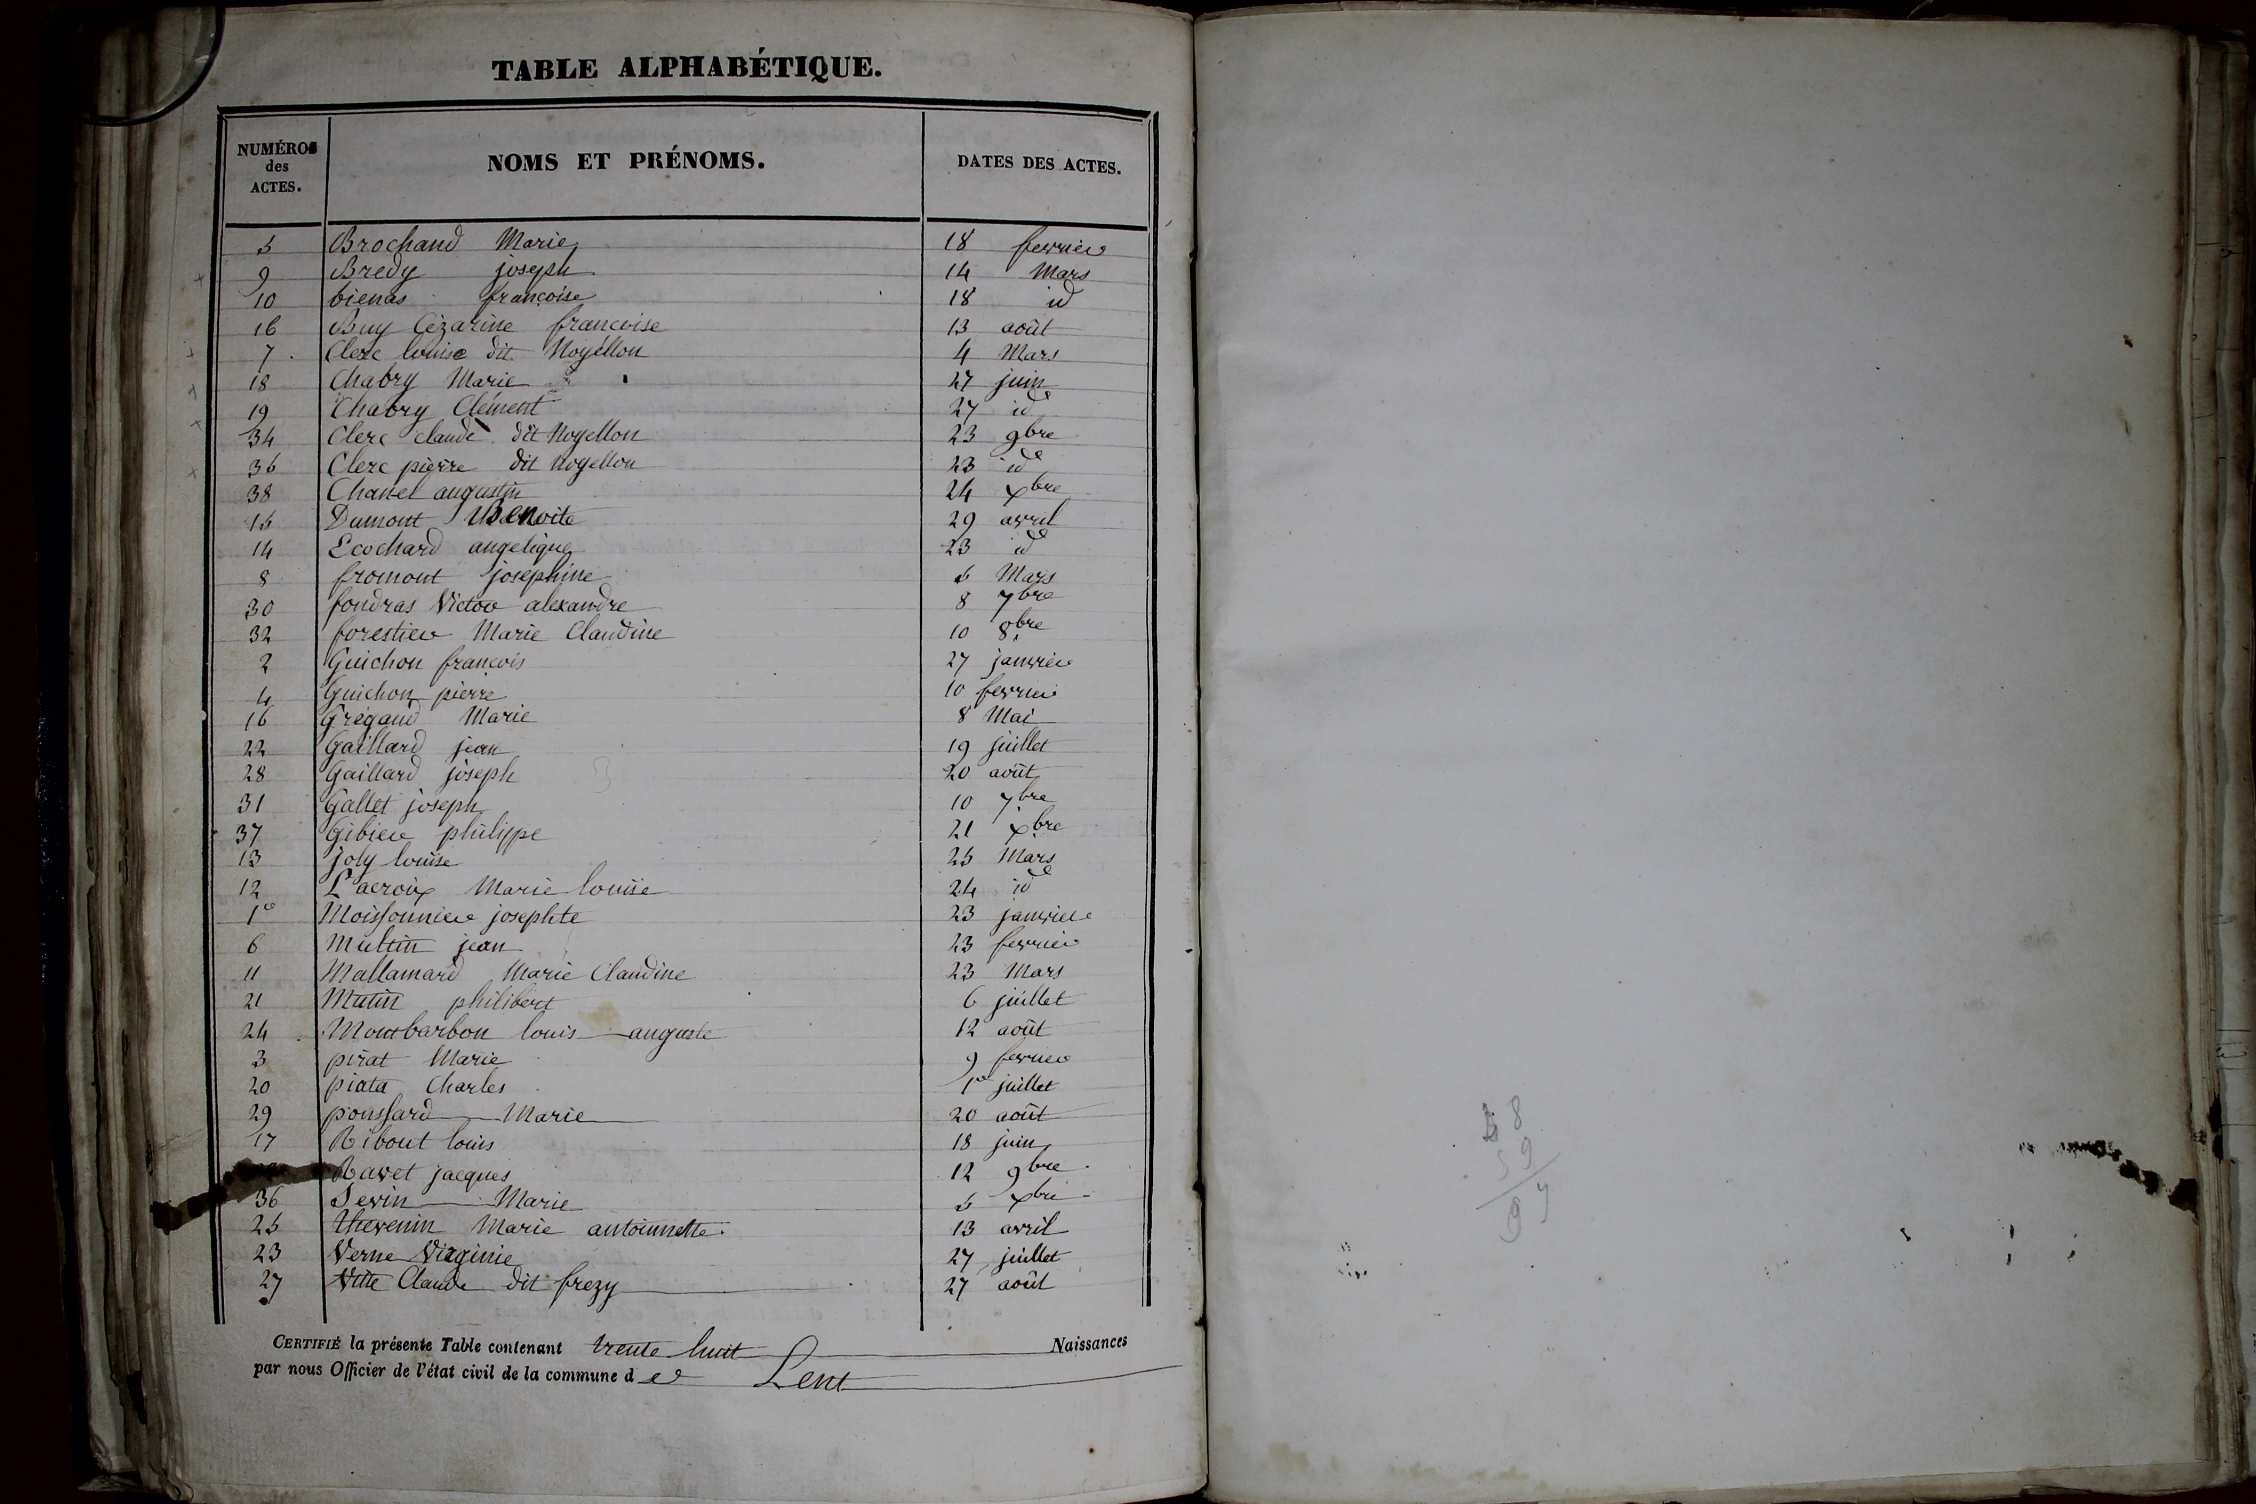 TABLE ALPHABÉTIQUE.
NUMÉROS des ACTES. NOMS ET PRÉNOMS. DATES DES ACTES.
5 Brochand Marie 18 fevrier
9 Bredy joseph 14 Mars
10 bienas françoise 18 id
16 Buy Cézarine francoise 13 août
7 Clerc louise dit Noyellon 4 Mars
18 Chabry Marie 27 juin
19 Chabry Clément 27 id
34 Clerc claude dit Noyellon 23 9bre
35 Clerc pierre dit Noyellon 23 id
38 Chanel augustin 24 xbre
15 Dumont Benoite 29 avril
14 Ecochard angelique 23 id
8 fromont josephine 5 Mars
30 fondras Victor alexandre 8 7bre
32 forestier Marie Claudine 10 8bre
2 Guichon francois 27 janvier
4 Guichon pierre 10 fevrier
16 Grégaud Marie 8 Mai
22 Gaillard jean 19 juillet
28 Gaillard joseph 20 août
31 Gallet joseph 10 7bre
37 Gibier philippe 21 xbre
13 joly louise 25 Mars
12 Lacroix Marie louise 24 id
1er Moissonnier josephte 23 janvier
6 Multin jean 23 fevrier
11 Mallamard Marie Claudine 23 Mars
21 Mutin philibert 6 juillet
24 Montbarbon louis auguste 12 août
3 pirat Marie 9 fevrier
20 piata Charles 1er juillet
29 poussard Marie 20 août
17 Ribout louis 18 juin
Ravet jacques 12 9bre
36 Sevin Marie 5 xbre
25 thevenin Marie antoinette 13 avril
23 Verne Virginie 27 juillet
27 Vitte Claude dit frezy 27 août
CERTIFIÉ la présente Table contenant trente huit Naissances
par nous Officier de l'état civil de la commune de Lent
58
39
97